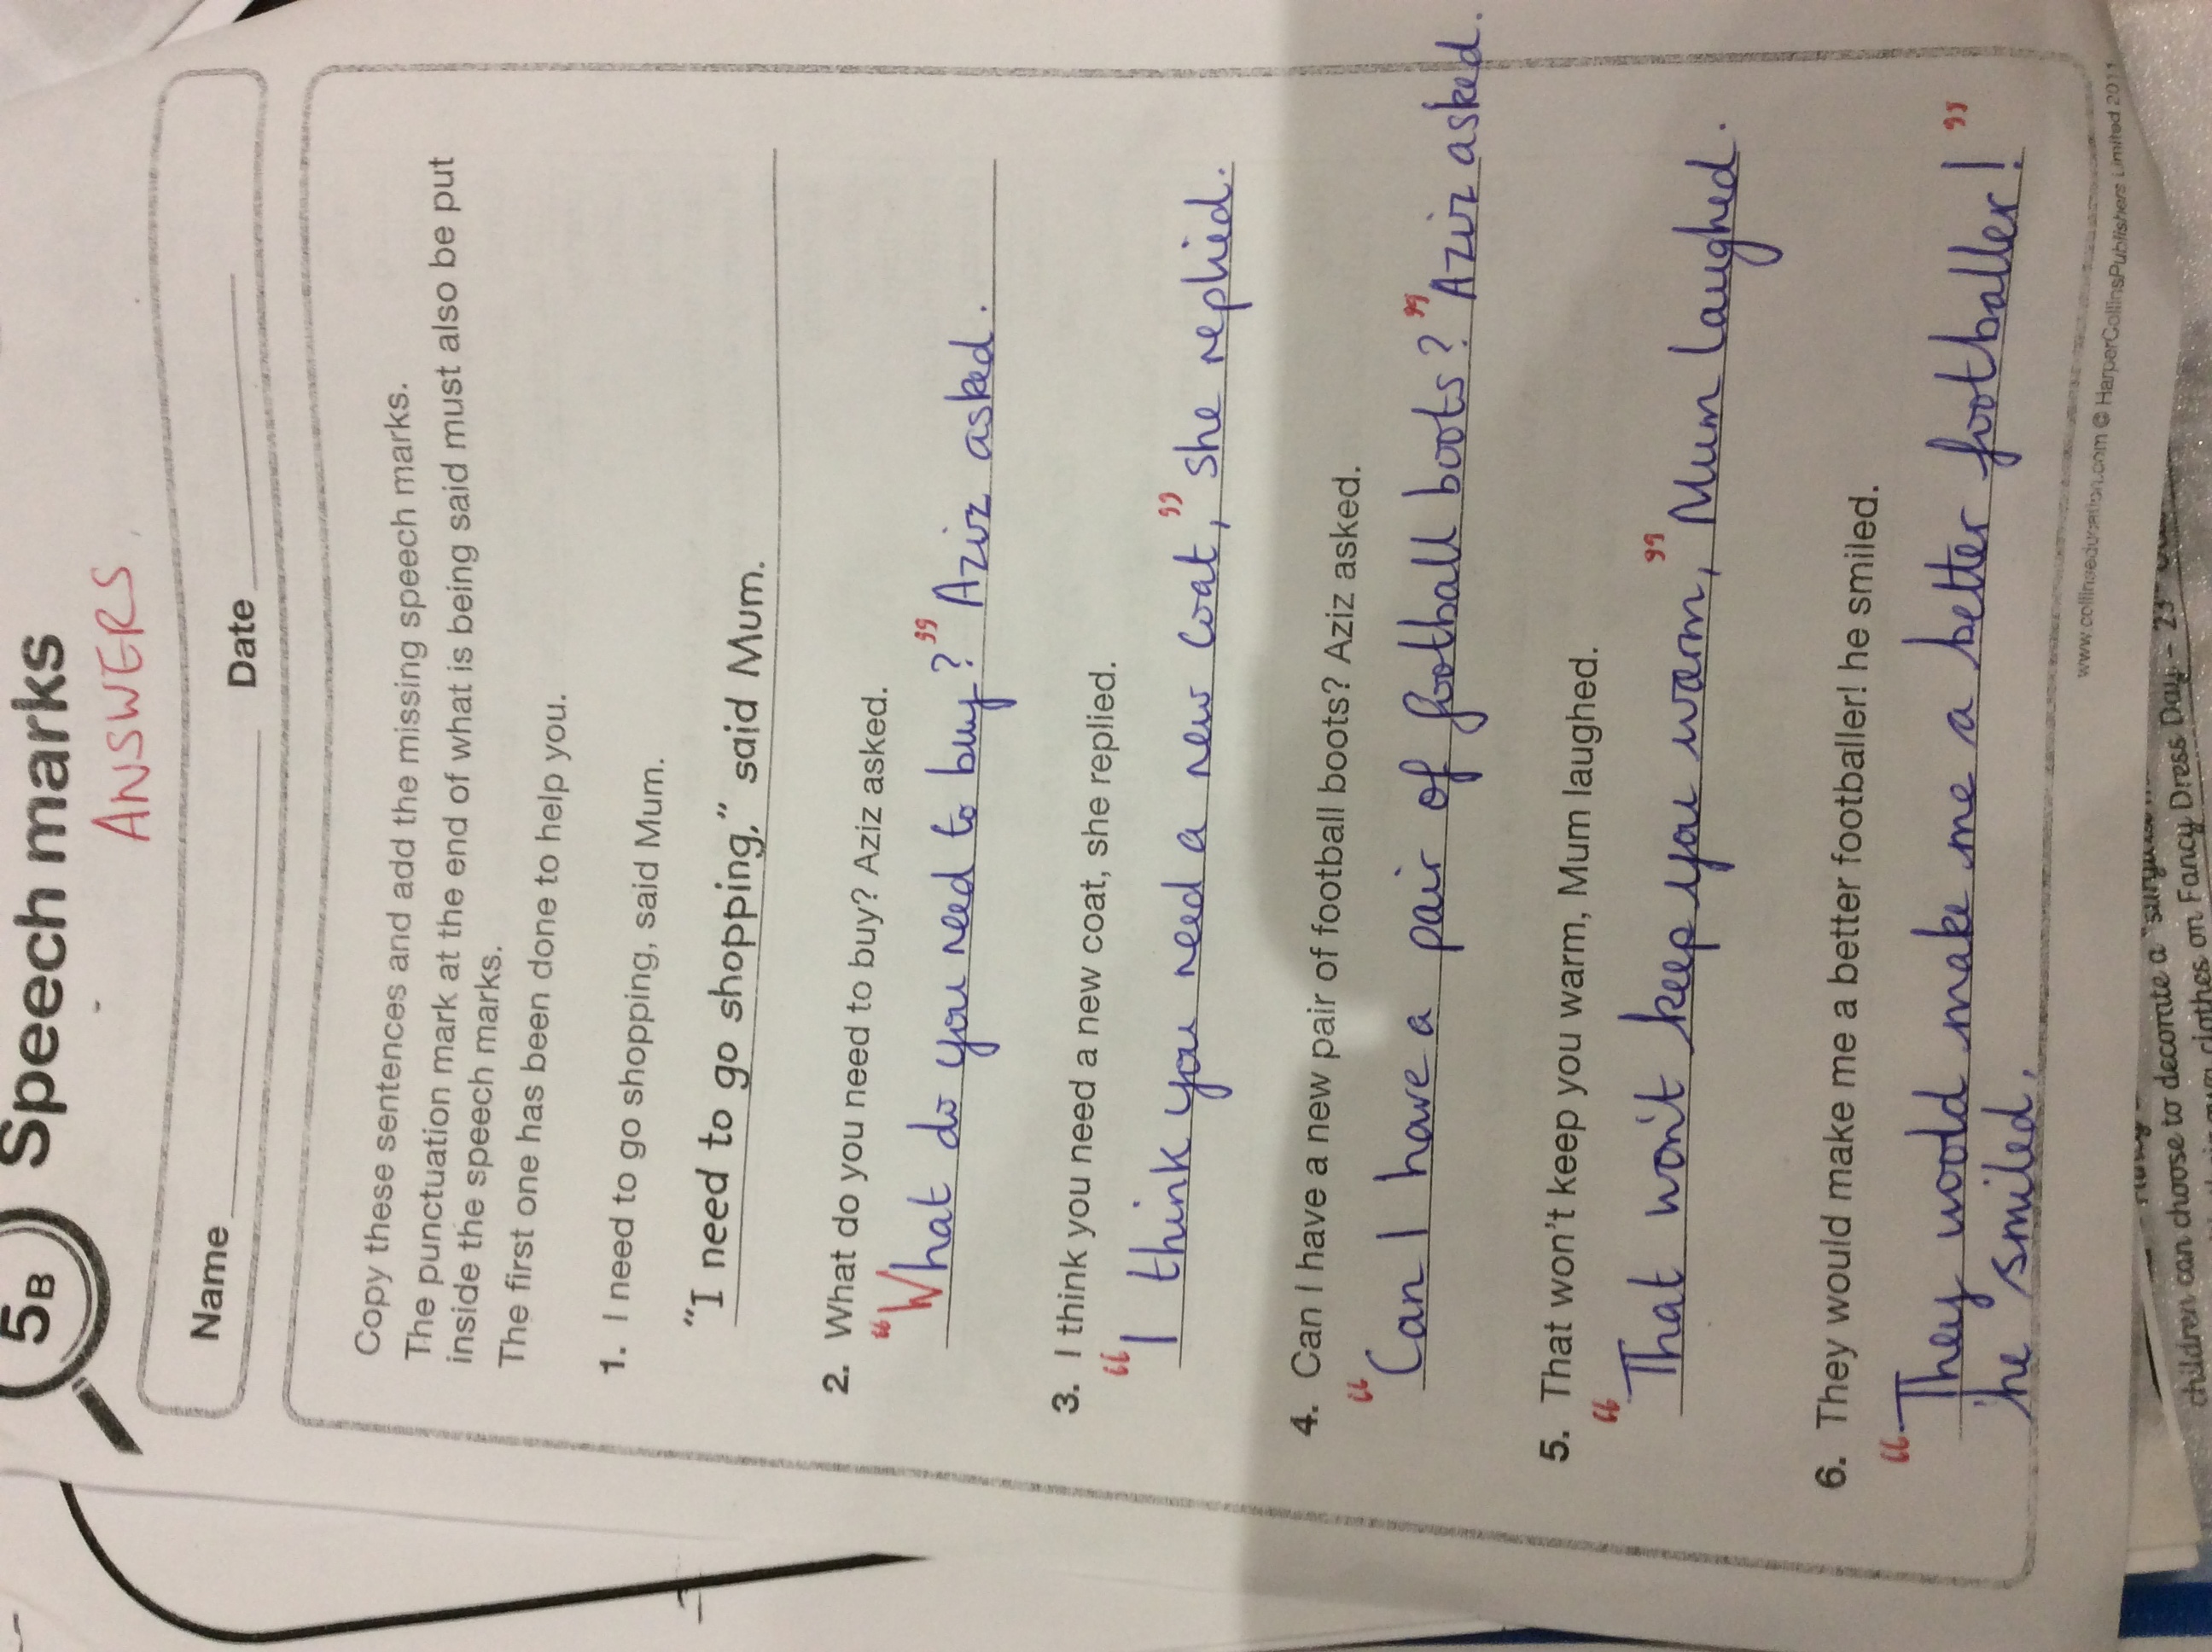 5B Speech marks
ANSWERS
Name Date
Copy these sentences and add the missing speech marks.
The punctuation mark at the end of what is being said must also be put
inside the speech marks.
The first one has been done to help you.
1. I need to go shopping, said Mum.
“I need to go shopping,” said Mum.
2. What do you need to buy? Aziz asked.
“What do you need to buy?” Aziz asked.
3. I think you need a new coat, she replied.
“I think you need a new coat,” she replied.
4. Can I have a new pair of football boots? Aziz asked.
“Can I have a pair of football boots?” Aziz asked.
5. That won't keep you warm, Mum laughed.
“That won't keep you warm,” Mum laughed.
6. They would make me a better footballer! he smiled.
“They wold make me a better footballer!”
he smiled.
www.collinseducation.com © HarperCollinsPublishers Limited 2011
children can choose to decorate a
clothes on Fancy Dress Day - 23